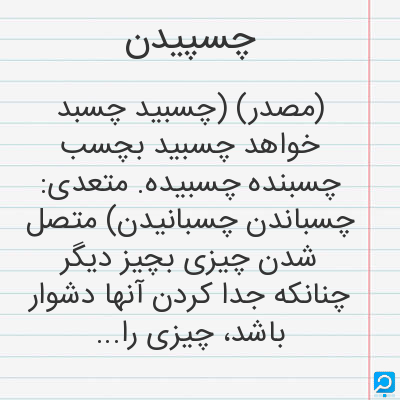 چسپیدن
(مصدر) (چسبید چسبد
خواهد چسبید بچسب
چسبنده چسبیده. متعدی:
چسباندن چسبانیدن) متصل
شدن چیزی بچیز دیگر
چنانکه جدا کردن آنها دشوار
باشد، چیزی را...